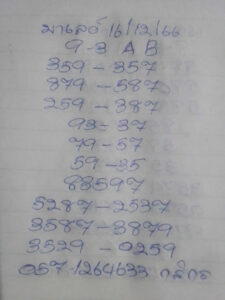 มาเลย์ 16/12/66
9-3 A B
359-357
879-587
259-387
93-37
79-57
59-35
83597
5287-2537
3587-3879
3529-0259
057-1264633 กสิกร